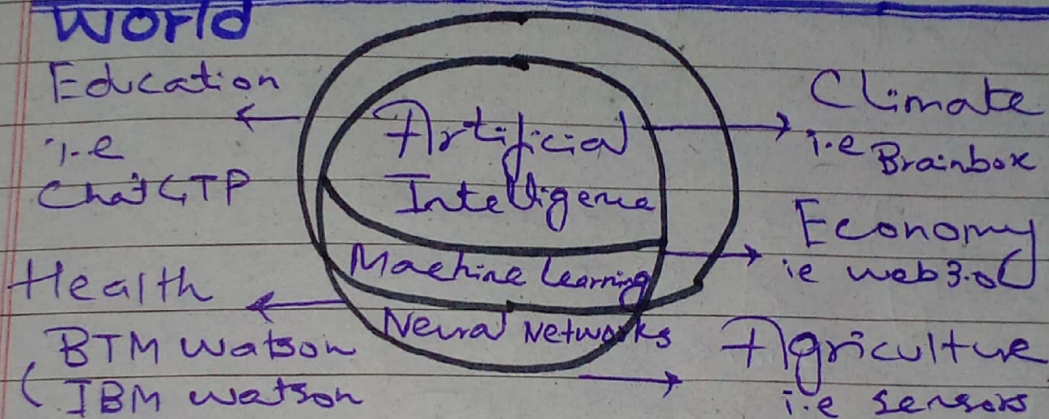 World
Education
i.e
ChatGTP
Health
BTM Watson
( IBM Watson
Artificial
Intelligence
Machine Learning
Neural Networks
Climate
i.e Brainbox
Economy
ie web3.0
Agriculture
i.e sensors